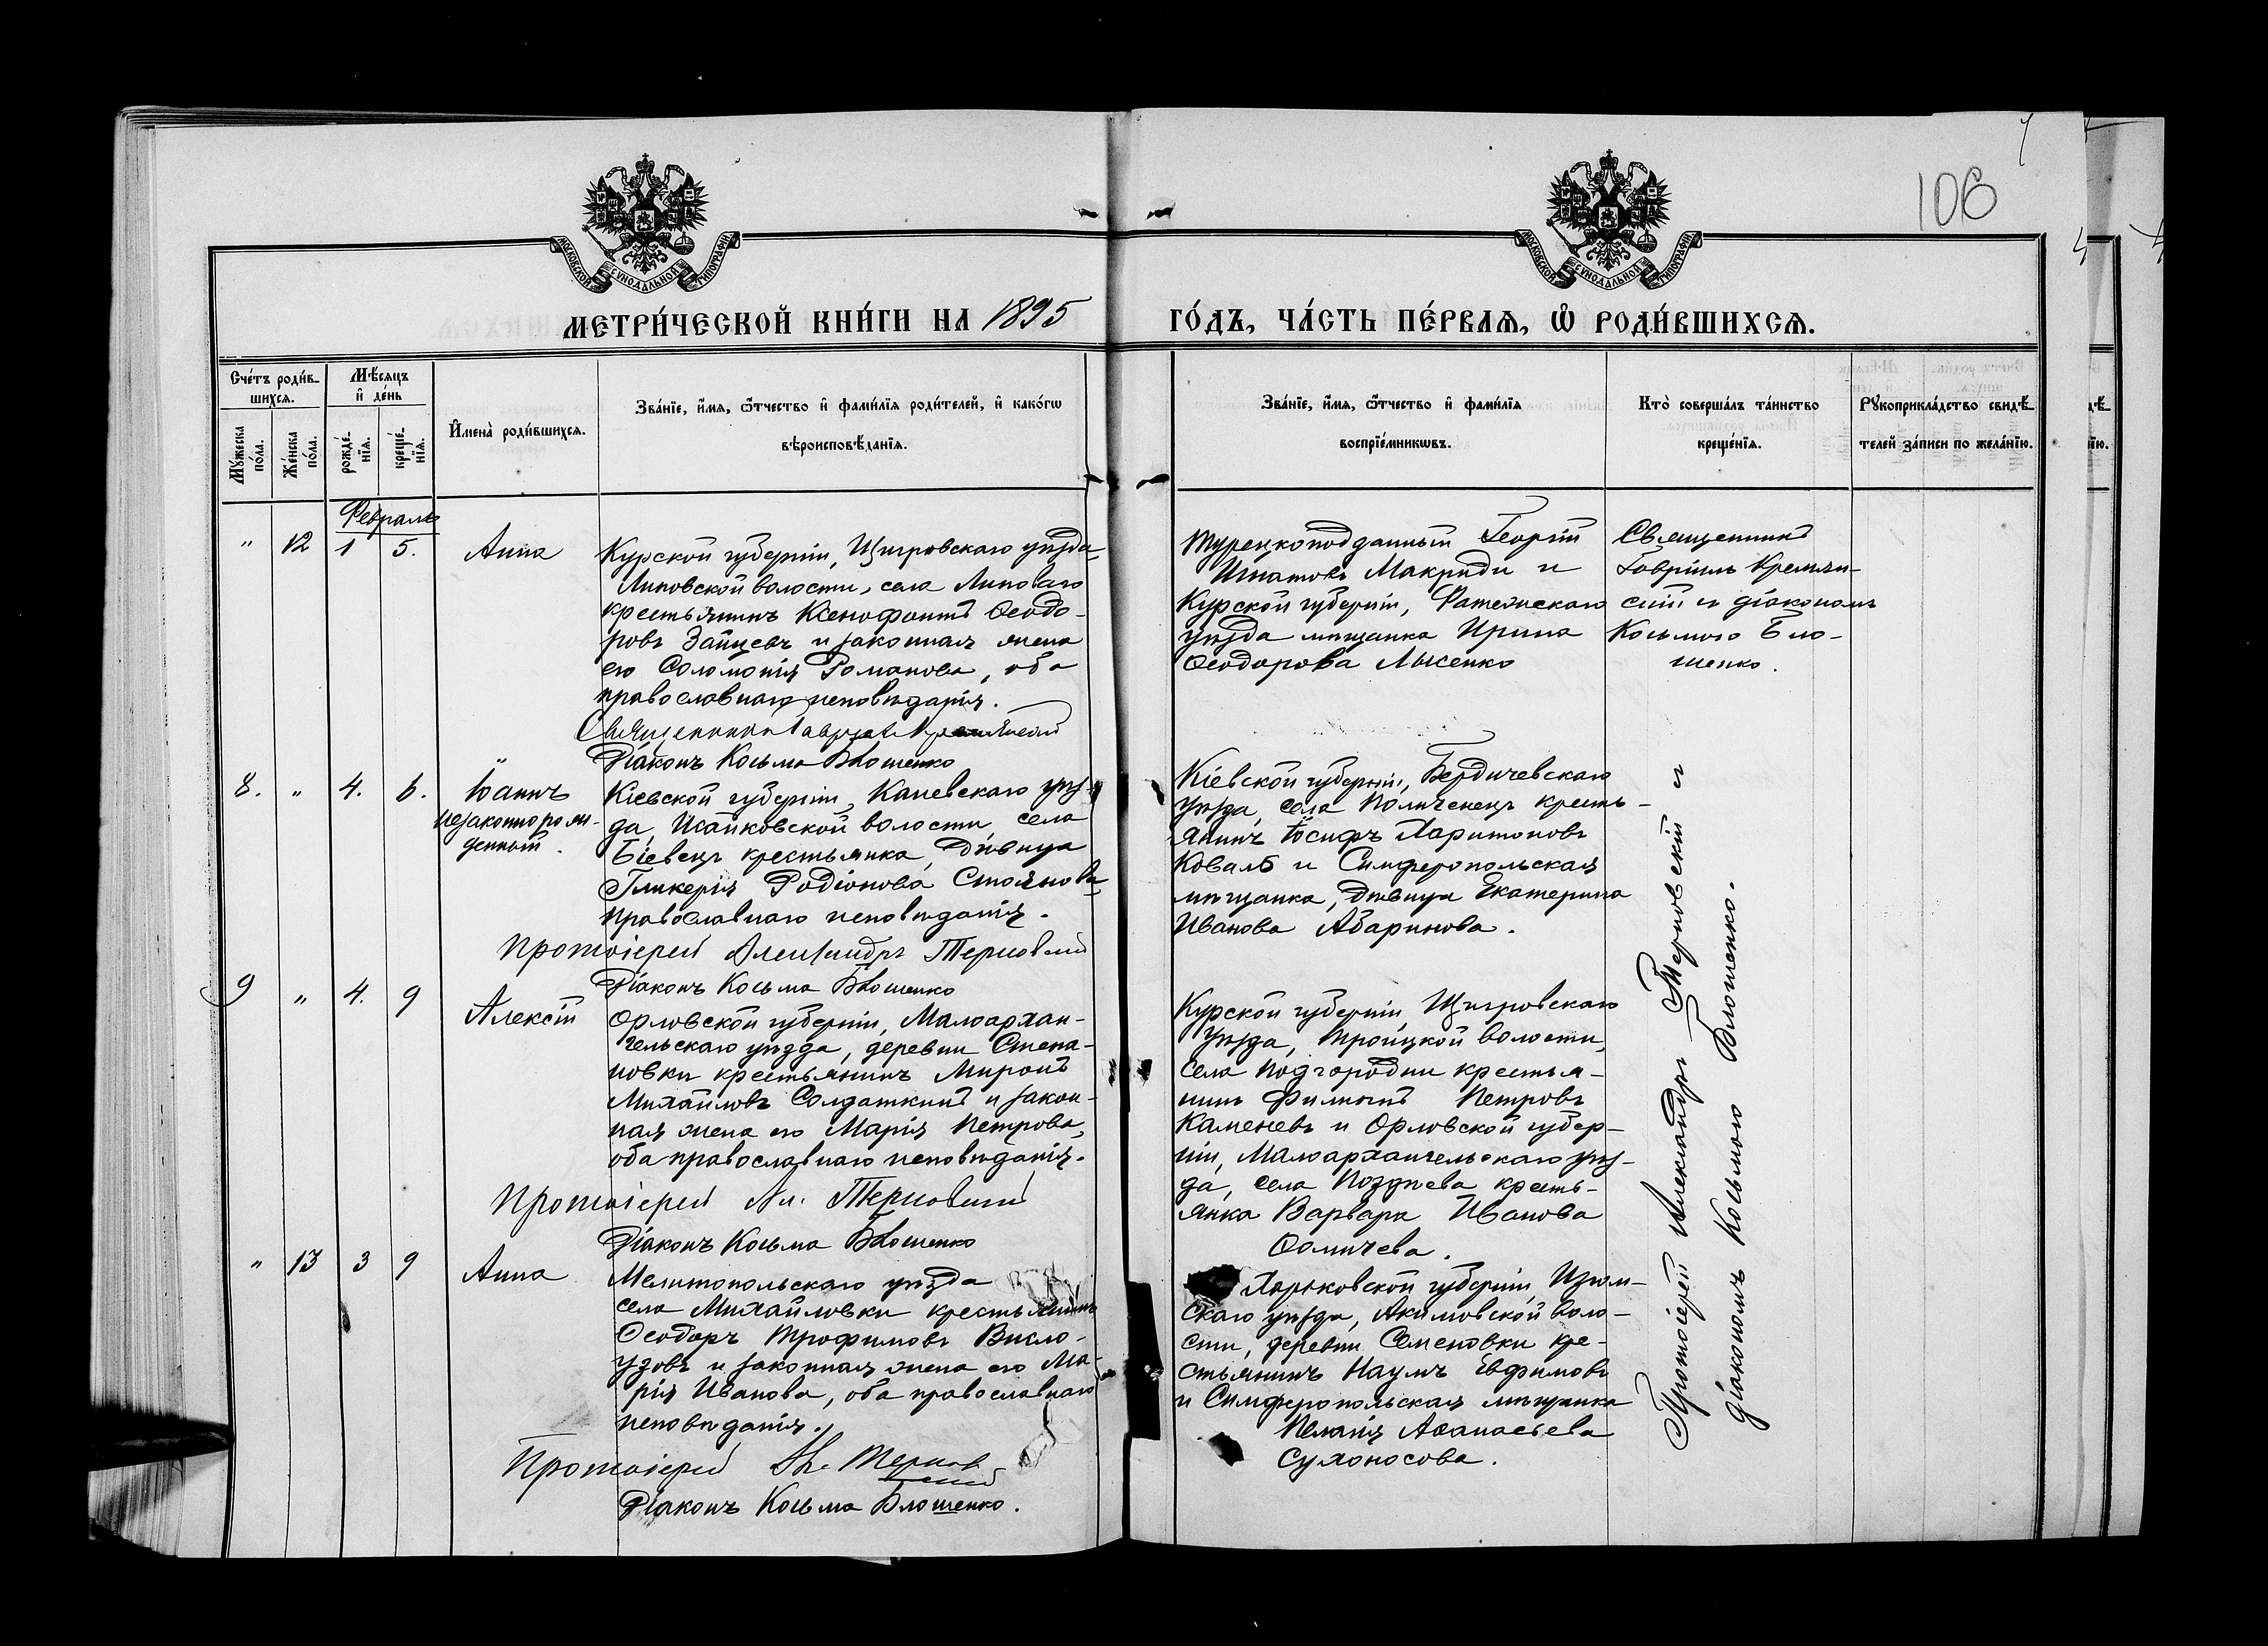 106
МОСКОВСКОЙ СѴНОДАЛЬНОЙ ТИПОГРАФІИ
МОСКОВСКОЙ СѴНОДАЛЬНОЙ ТИПОГРАФІИ
МЕТРИ́ЧЕСКОЙ КНИ́ГИ НА 1895
ГО́ДЪ, ЧА́СТЬ ПЕ́РВАЯ, Ѽ РОДИ́ВШИХСЯ.
Сче́тъ роди́в-
шихся.
Мѣ́сяцъ
и҆ де́нь
Му́жеска по́ла.
Же́нска по́ла.
рожде́-нїѧ.
креще́-нїѧ.
И҆мена̀ роди́вшихся.
Зва́нїе, и҆́мя, ѻ҆́тчество и҆ фами́лїя роди́телей, и҆ како́гѡ
вѣроисповѣ́данїя.
Зва́нїе, и҆́мя, ѻ҆́тчество и҆ фами́лїя
воспрїе́мникѡвъ.
Кто̀ соверша́лъ та́инство
креще́нїя.
Рꙋкоприкла́дство свидѣ́-
телей за́писи по жела́нїю.
Февраль
" 12 1 5. Анна
Курской губерніи, Щигровскаго уѣзда,
Липовской волости, села Липоваго
крестьянинъ Ксенофонтъ Ѳеодо-
ровъ Зайцевъ и законная жена
его Соломонія Романова, оба
православнаго исповѣданія.
Священникъ Гавріилъ
Діаконъ Косьма Блошенко
Турецкоподданный Георгій
Игнатовъ Макриди и
Курской губерніи, Фатежскаго
уѣзда мѣщанка Ирина
Ѳеодорова Лысенко
Священникъ
Гавріилъ Кремян-
скій и діакономъ
Косьмою Бло-
шенко.
8. " 4. 6. Іоаннъ
незаконнорож-
денный.
Кіевской губерніи, Каневскаго уѣз-
да, Шайковской волости, села
Біевецъ крестьянка, дѣвица
Гликерія Родіонова Стоянова,
православнаго исповѣданія.
Протоіерей Александръ Терновскій
Діаконъ Косьма Блошенко
Кіевской губерніи, Бердичевскаго
уѣзда, села Поличенецъ кресть-
янинъ Іосифъ Харитоновъ
Коваль и Симферопольская
мѣщанка, дѣвица Екатерина
Иванова Абаринова.
9 " 4. 9 Алексѣй
Орловской губерніи, Малоархан-
гельскаго уѣзда, деревни Степа-
новки крестьянинъ Миронъ
Михайловъ Солдаткинъ и закон-
ная жена его Марія Петрова,
оба православнаго исповѣданія.
Протоіерей Ал. Терновскій
Діаконъ Косьма Блошенко
Курской губерніи, Щигровскаго
уѣзда, Троицкой волости,
села Подгородни крестья-
нинъ Филиппъ Петровъ
Каменевъ и Орловской губер-
ніи, Малоархангельскаго уѣз-
да, села Позднева кресть-
янка Варвара Иванова
Ѳомичева.
" 13 3 9 Анна
Мелитопольскаго уѣзда
села Михайловки крестьянинъ
Ѳеодоръ Трофимовъ Висло-
узовъ и законная жена его Ма-
рія Иванова, оба православнаго
исповѣданія.
Протоіерей Ал. Тернов
скій
Діаконъ Косьма Блошенко.
Харьковской губерніи, Изюм-
скаго уѣзда, Акимовской воло-
сти, деревни Семеновки кре-
стьянинъ Наумъ Евфимовъ
и Симферопольская мѣщанка
Пелагія Аѳанасьева
Сухоносова.
Протоіерей Александръ Терновскій и
діакономъ Косьмою Блошенко.